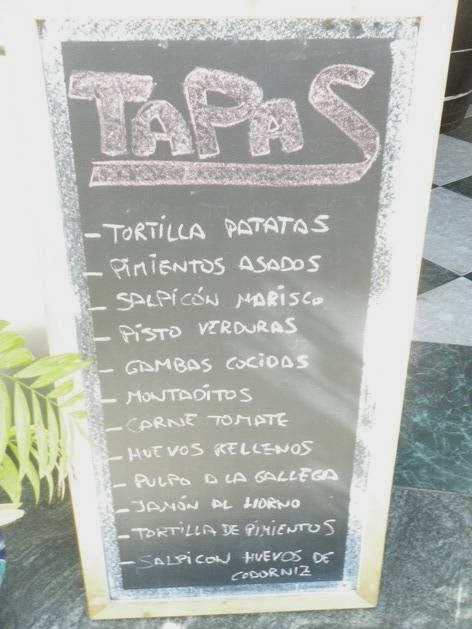 TAPAS
- TORTILLA PATATAS
- PIMIENTOS ASADOS
- SALPICÓN MARISCO
- PISTO VERDURAS
- GAMBAS COCIDAS
- MONTADITOS
- CARNE TOMATE
- HUEVOS RELLENOS
- PULPO A LA GALLEGA
- JAMÓN AL HORNO
- TORTILLA DE PIMIENTOS
- SALPICON HUEVOS DE
CODORNIZ